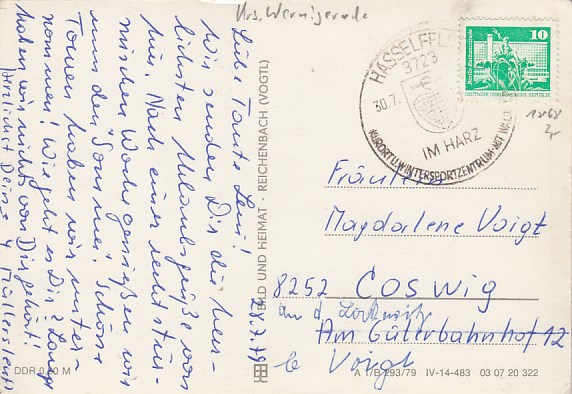 Krs. Wernigerode
Liebe Tante Leni!
Wir senden Dir die herz-
lichsten Urlaubsgrüße von
hier. Nach einer recht stür-
mischen Woche genießen wir
nun den "Sonne". Schöne
Touren haben wir unter-
nommen! Wie geht es Dir? Lange
haben wir nichts von Dir gehört!
Herzlichst Deine 4 Müllersleut!
28.7.79
BILD UND HEIMAT · REICHENBACH (VOGTL)
DDR 0,20 M
HASSELFELDE
3723
30.7.
IM HARZ
KURORT U. WINTERSPORTZENTRUM · MIT WALD
10
DEUTSCHE DEMOKRATISCHE REPUBLIK
Fräulein
Magdalene Voigt
8252 Coswig
an d. Lockwitz
Am Güterbahnhof 12
b Voigt
A 1/B 293/79 IV-14-483 03 07 20 322